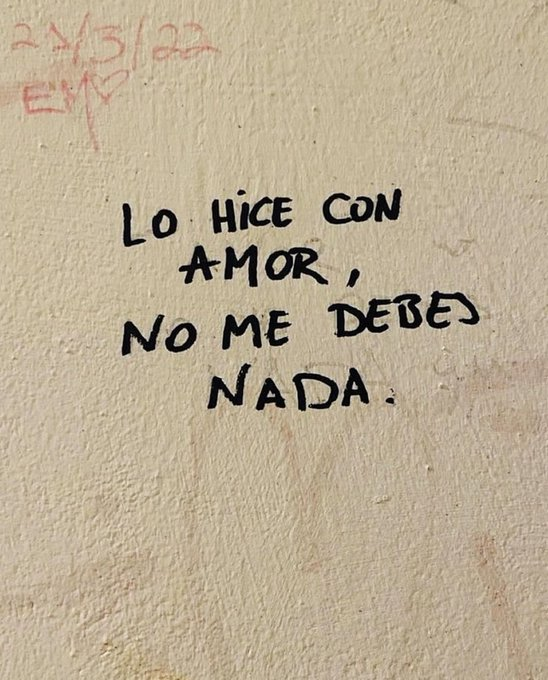 21/3/22
EM♡
LO HiCE CON
AMOR,
NO ME DEBES
NADA.